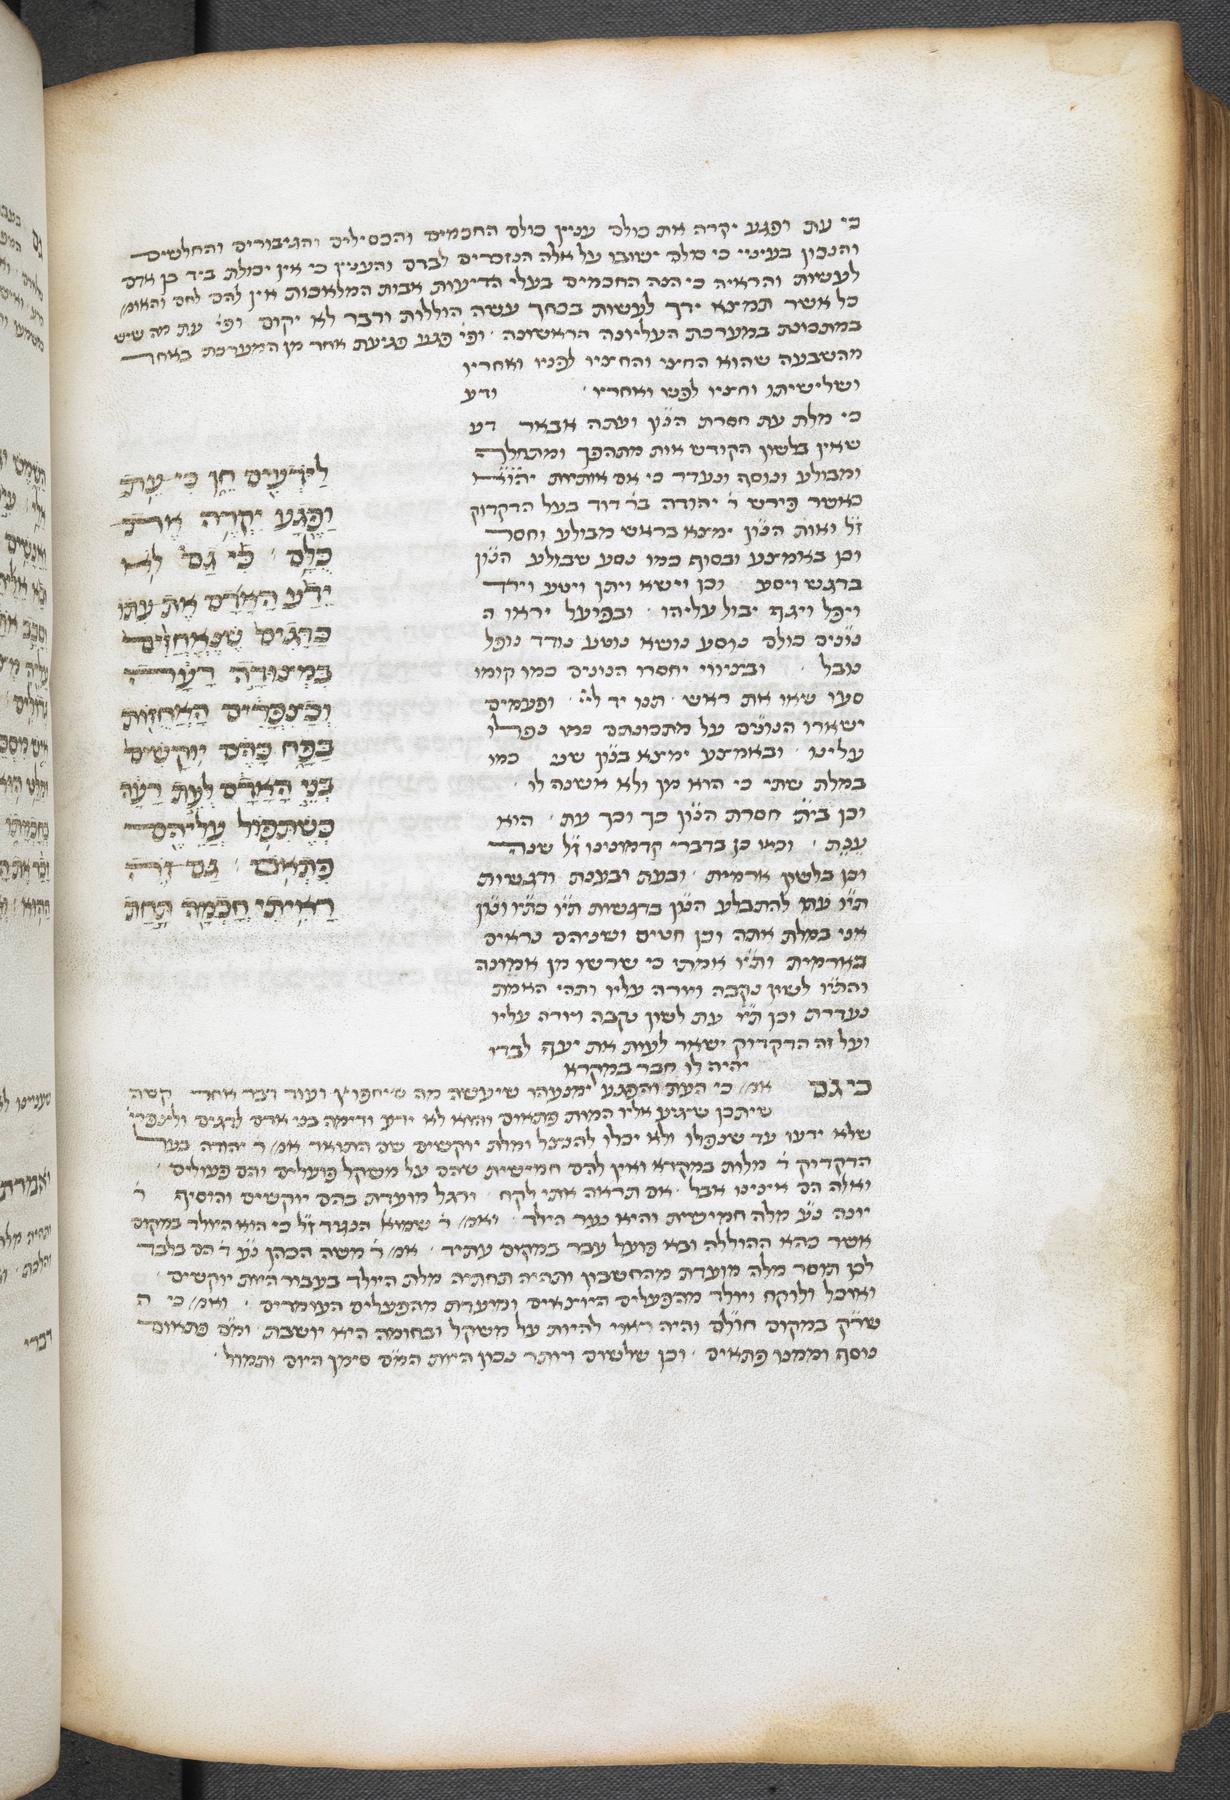 כי עת ופגע יקרה את כולם עניין כולם החכמים והכסילים והגיבורים והחלשים
והנכון בעיניי כי מלת ישובו על אלה הנזכרים לברם והעניין כי אין יכולת ביד בן אדם
לעשות והראיה כי הנה החכמים בעלי הדיעות אבות המלאכות אין להם לחם והאומ'
כל אשר תמצא ידך לעשות בכחך עשה הוללות ודבר לא יקום ופי' עת מה שיש
במתכונת במערכת העליונה הראשונה ׳ ופי' פגע פגיעת אחד מן המערכת באחד
מהשבעה שהוא החצי והחציו לפניו ואחריו
ושלישיתו וחציו לפניו ואחריו ׳ ודע
כי מלת עת חסרת הנ״ון ועתה אבאר דע
שאין בלשון הקודש אות מתהפך ומתחלף
ומבולע ונוסף ונעדר כי אם אותיות יהו״א
כאשר פירש ר׳ יהודה בר׳ דוד בעל הדקדוק
ז״ל ואות הנ״ון ימצא בראש מבולע וחסר
וכן באמצע ובסוף כמו נסע שבולע הנ״ון
ברגש ויסע וכן וישא ויתן ויטע וידד
ויפל ויגף יבול עליהו ׳ ובפועל יראו ה
נו״נים כולם נוסע נושא נוטע נודד נופל
נובל ׳ ובציווי יחסרו הנונים כמו קומו
סעו שאו את ראש ׳ תנו יד לי״י ׳ ופעמים
ישארו הנונים על מתכונתם כמו נפלו
עלינו ובאמצע ימצא בנ״ון שני כמו
במלת שתי כי הוא מן ולא אשנה לו ׳
וכן בית חסרת הנ״ון כך וכך עת ׳ הוא
ענת ׳ ובאו כן בדברי קדמונינו ז״ל שנה
וכן בלשון ארמית ׳ ובעת ובענת ודגשות
תי״ו עתו להתבלע הנ״ון בדגשות תי״ו כתי״ו ונ״ון
אני במלת אתה וכן חטים ושניהם נראים
בארמית ותי״ו אמתי כי שרשו מן אמונה
והתי״ו לשון נקבה ויורה עליו ותהי האמת
נעדרת וכן תי״ו עת לשון נקבה ויורה עליו
ועל זה הדקדוק ישאר לעות את יעף לבדו
יהיה לו חבר במקרא
לַיֹּדְעִים חֵן כִּי עֵת
וָפֶגַע יִקְרֶה אֶת
כֻּלָּם ׳ כִּי גַם לֹא
יֵדַע הָאָדָם אֶת עִתּוֹ
כַּדָּגִים שֶׁנֶּאֱחָזִים
בִּמְצוֹדָה רָעָה
וְכַצִּפֳּרִים הָאֲחֻזוֹת
בַּפָּח כָּהֵם יוּקָשִׁים
בְּנֵי הָאָדָם לְעֵת רָעָה
כְּשֶׁתִּפּוֹל עֲלֵיהֶם
פִּתְאֹם ׳ גַּם זֹה
רָאִיתִי חָכְמָה תַּחַת
כי גם אמ׳ כי העת והפגע ימנעהו שיעשה מה שיחפוץ ועוד דבר אחר קשה
שיתכן שיגיע אליו המות פתאום והוא לא ידע ודימה בני אדם לדגים ולצפרי׳
שלא ידעו עד שנפלו ולא יכלו להנצל ומלת יוקשים שם התואר אמ׳ ר׳ יהודה בעל
הדקדוק ר׳ מלות במקרא ואין להם חמישית שהם על משקל פועלים והם פעולים ׳
ואלה הם איננו אכל ׳ אם תראה אתי לקח ׳ ורגל מועדת בהם יוקשים והוסיף ר׳
יונה נ״ע מלה חמישית והיא נער היולד ׳ ואמ׳ ר׳ שמוא׳ הנגיד ז״ל כי הוא היולד במקום
אשר כהא ההוללה ובא פועל עבר במקום עתיד ׳ אמ׳ ר׳ משה הכהן נ״ע ר׳ הם בלבד
לכן תוסר מלה מועדת מהחשבון ותהיה תחתיה מלת היולד בעבור היות יוקשים ׳
ואוכל ולוקח ויולד מהפעלים היוצאים ומועדת מהפעלים העומדים ׳ ואמ׳ כי ה
שר״ק במקום חו״לם והיה ראוי להיות על משקל ובחומה היא יושבת ׳ ומ״ם פתאום
נוסף וממנו פתאים ׳ וכן שלשום ויותר נכון היות המ״ם סימן היום ותמול ׳